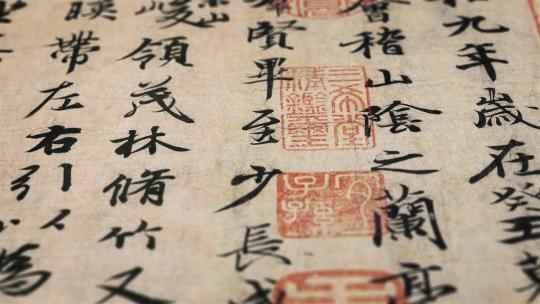 和九年歲在癸丑暮
會稽山陰之蘭亭
羣賢畢至少長咸
崇山
峻領茂林脩竹又
暎帶左右引以為
三希堂精鑑璽
宜子孫